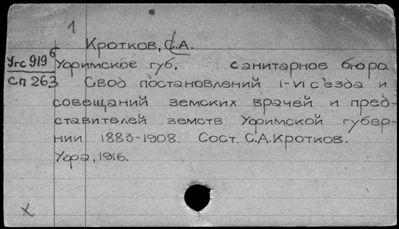 1
Кротков, С.А.
Угс 919б Уфимское губ. санитарное бюро
Сп 263 Свод постановлений I-VI съезда и
совещаний земских врачей и пред-
ставителей земств Уфимской губер-
нии 1883-1908. Сост. С.А.Кротков.
Уфа, 1916.
X